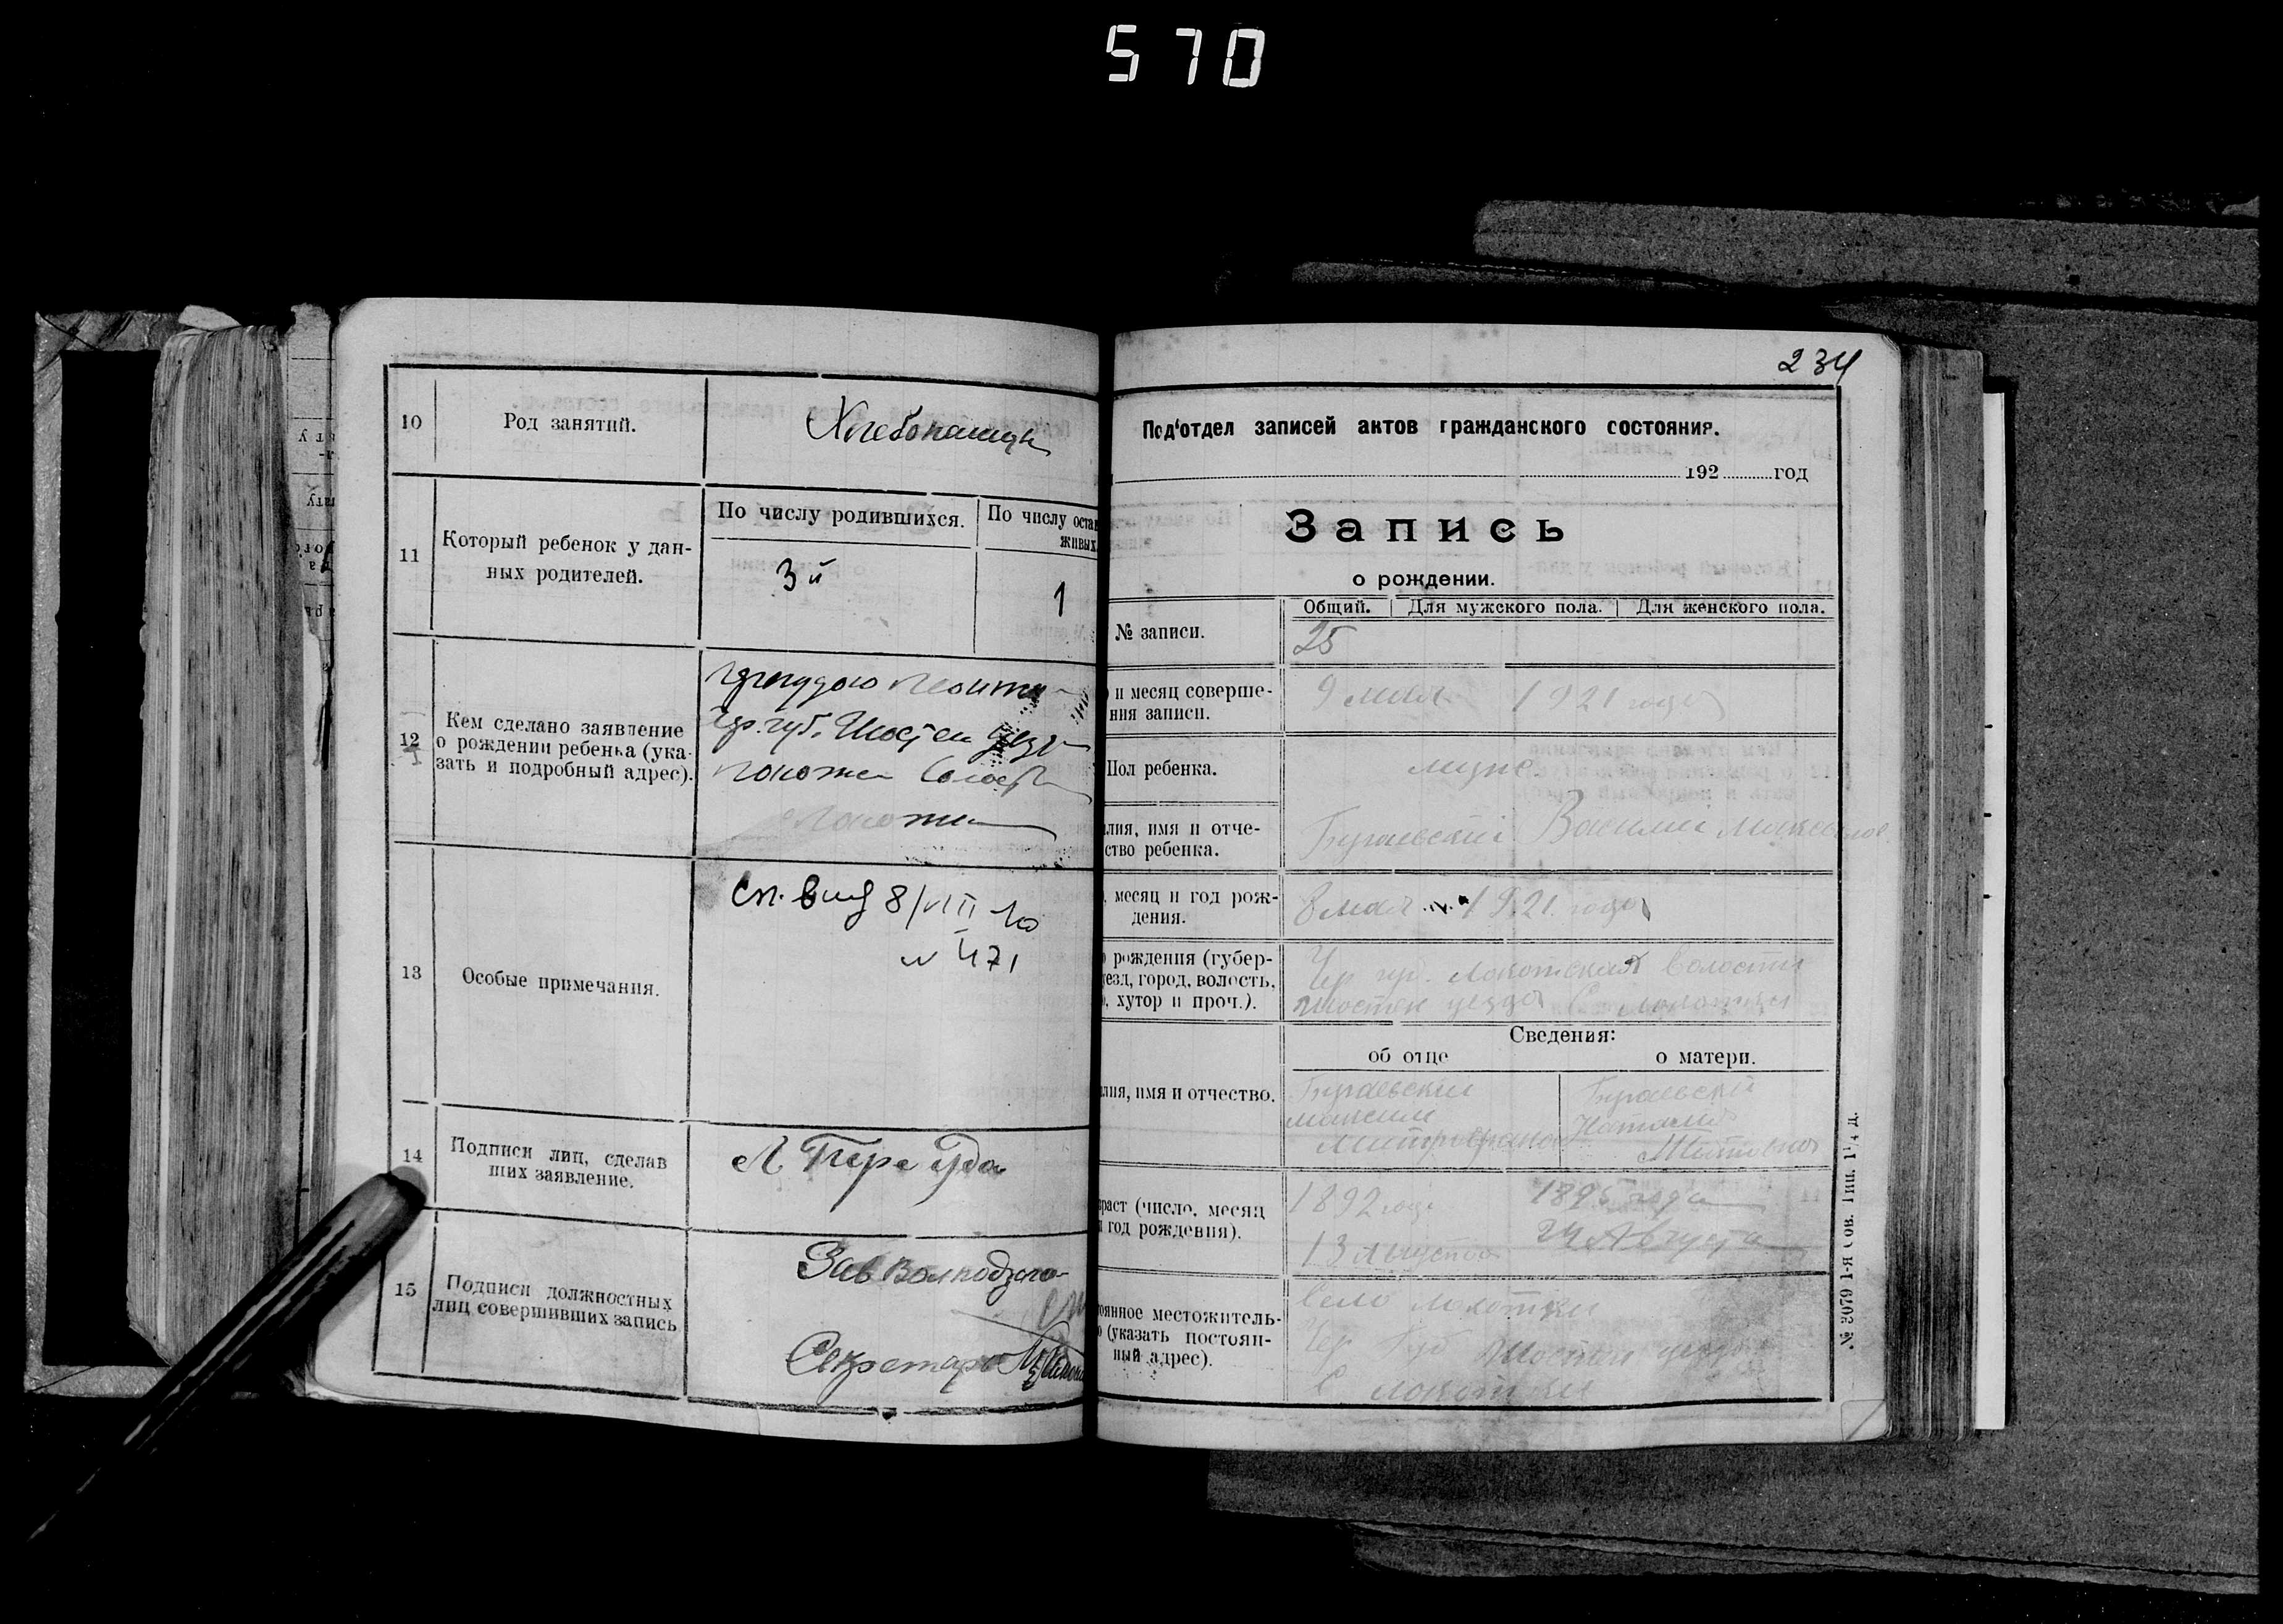 570
10
Род занятий.
Хлебопашец
11
Который ребенок у дан-
ных родителей.
По числу родившихся.
По числу остав
живых.
3й
1
12
Кем сделано заявление
о рождении ребенка (ука-
зать и подробный адрес).
Чер. губ. Шостен уезд
13
Особые примечания.
8/VIII
№ 471
14
Подписи лиц, сделав
ших заявление.
Л Переуда
15
Подписи должностных
лиц совершивших запись
Зав
Секретарь
234
Под'отдел записей актов гражданского состояния.
192 год
Запись
о рождении.
Общий. Для мужского пола. Для женского пола.
№ записи.
25
и месяц соверше-
ния записи.
9 мая 1921 года
Пол ребенка.
мужс.
лия, имя и отче-
ство ребенка.
Бугаевский Василий Максимов
месяц и год рож-
дения.
8 мая 1921 года
рождения (губер-
езд, город, волость,
, хутор и проч.).
Чер гу. Локотская волости
Шостен уезда С Локотки
Сведения:
об отце
о матери.
лия, имя и отчество.
Бугаевский
Максим
Митрофанов
Бугаевский
Наталия
Титовна
раст (число, месяц
год рождения).
1892 года
13 августа
1895 года
24 Августа
оянное местожитель-
(указать постоян-
ный адрес).
Село Локотки
Чер Губ Шостен уезда
С Локотки
№ 3079 1-я Сов. Тип. 1¼ д.